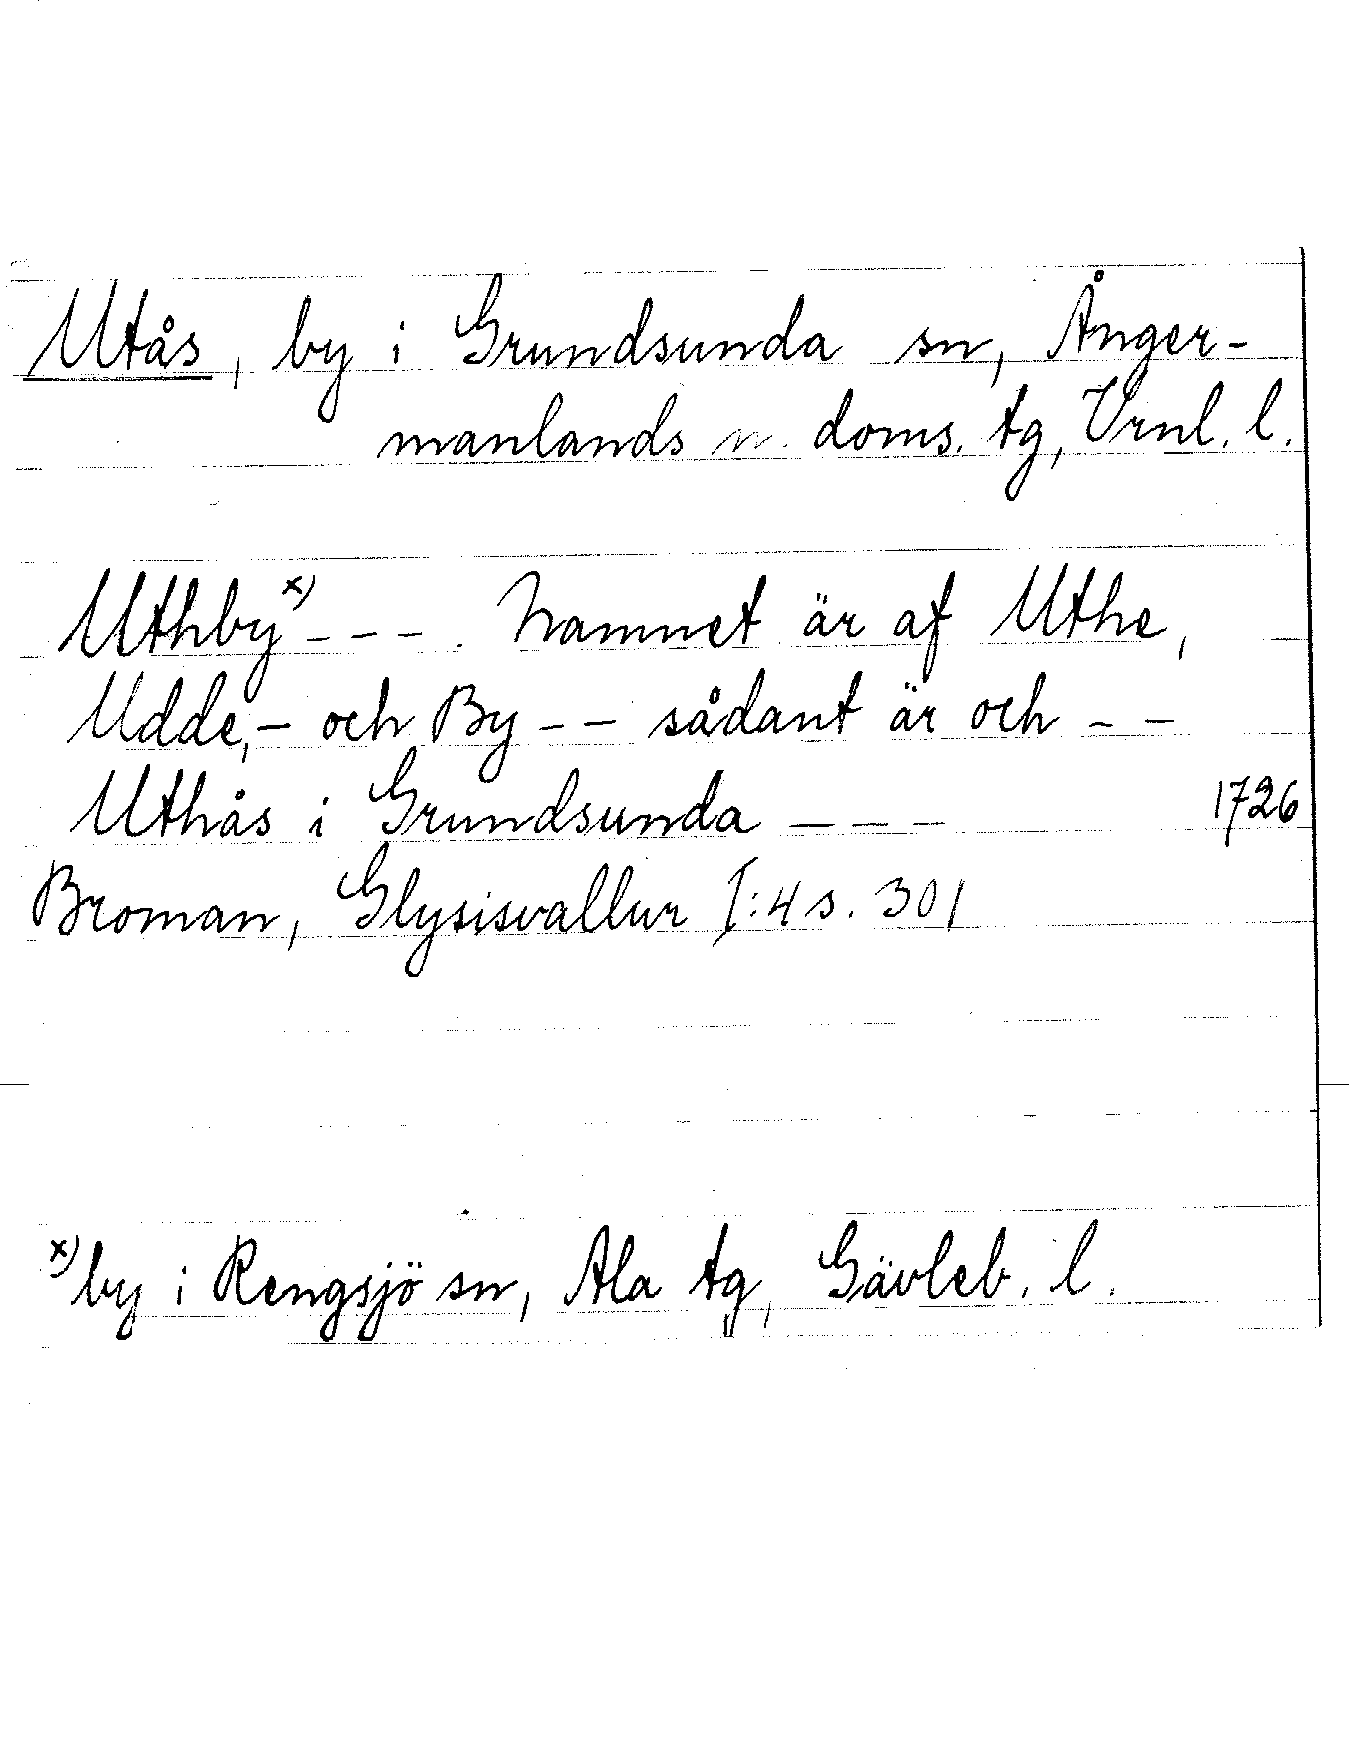 Utås, by i Grundsunda sn, Ånger-
manlands n. doms. tg, Vrnl. l.
Uthby x) - - - . Namnet är af Uthe,
Udde,- och By - - sådant är och - -
Uthås i Grundsunda - - - 1726
Broman, Glysisvallur I:4 s. 301
x) by i Rengsjö sn, Ala tg, Gävleb. l.